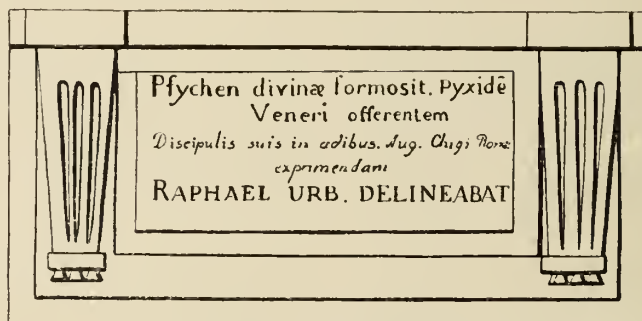 Pſychen divinæ formosit. Pyxidē
Veneri offerentem
Discipulis suis in ædibus. Aug. Chigi Romæ
exprimendam
RAPHAEL URB. DELINEABAT